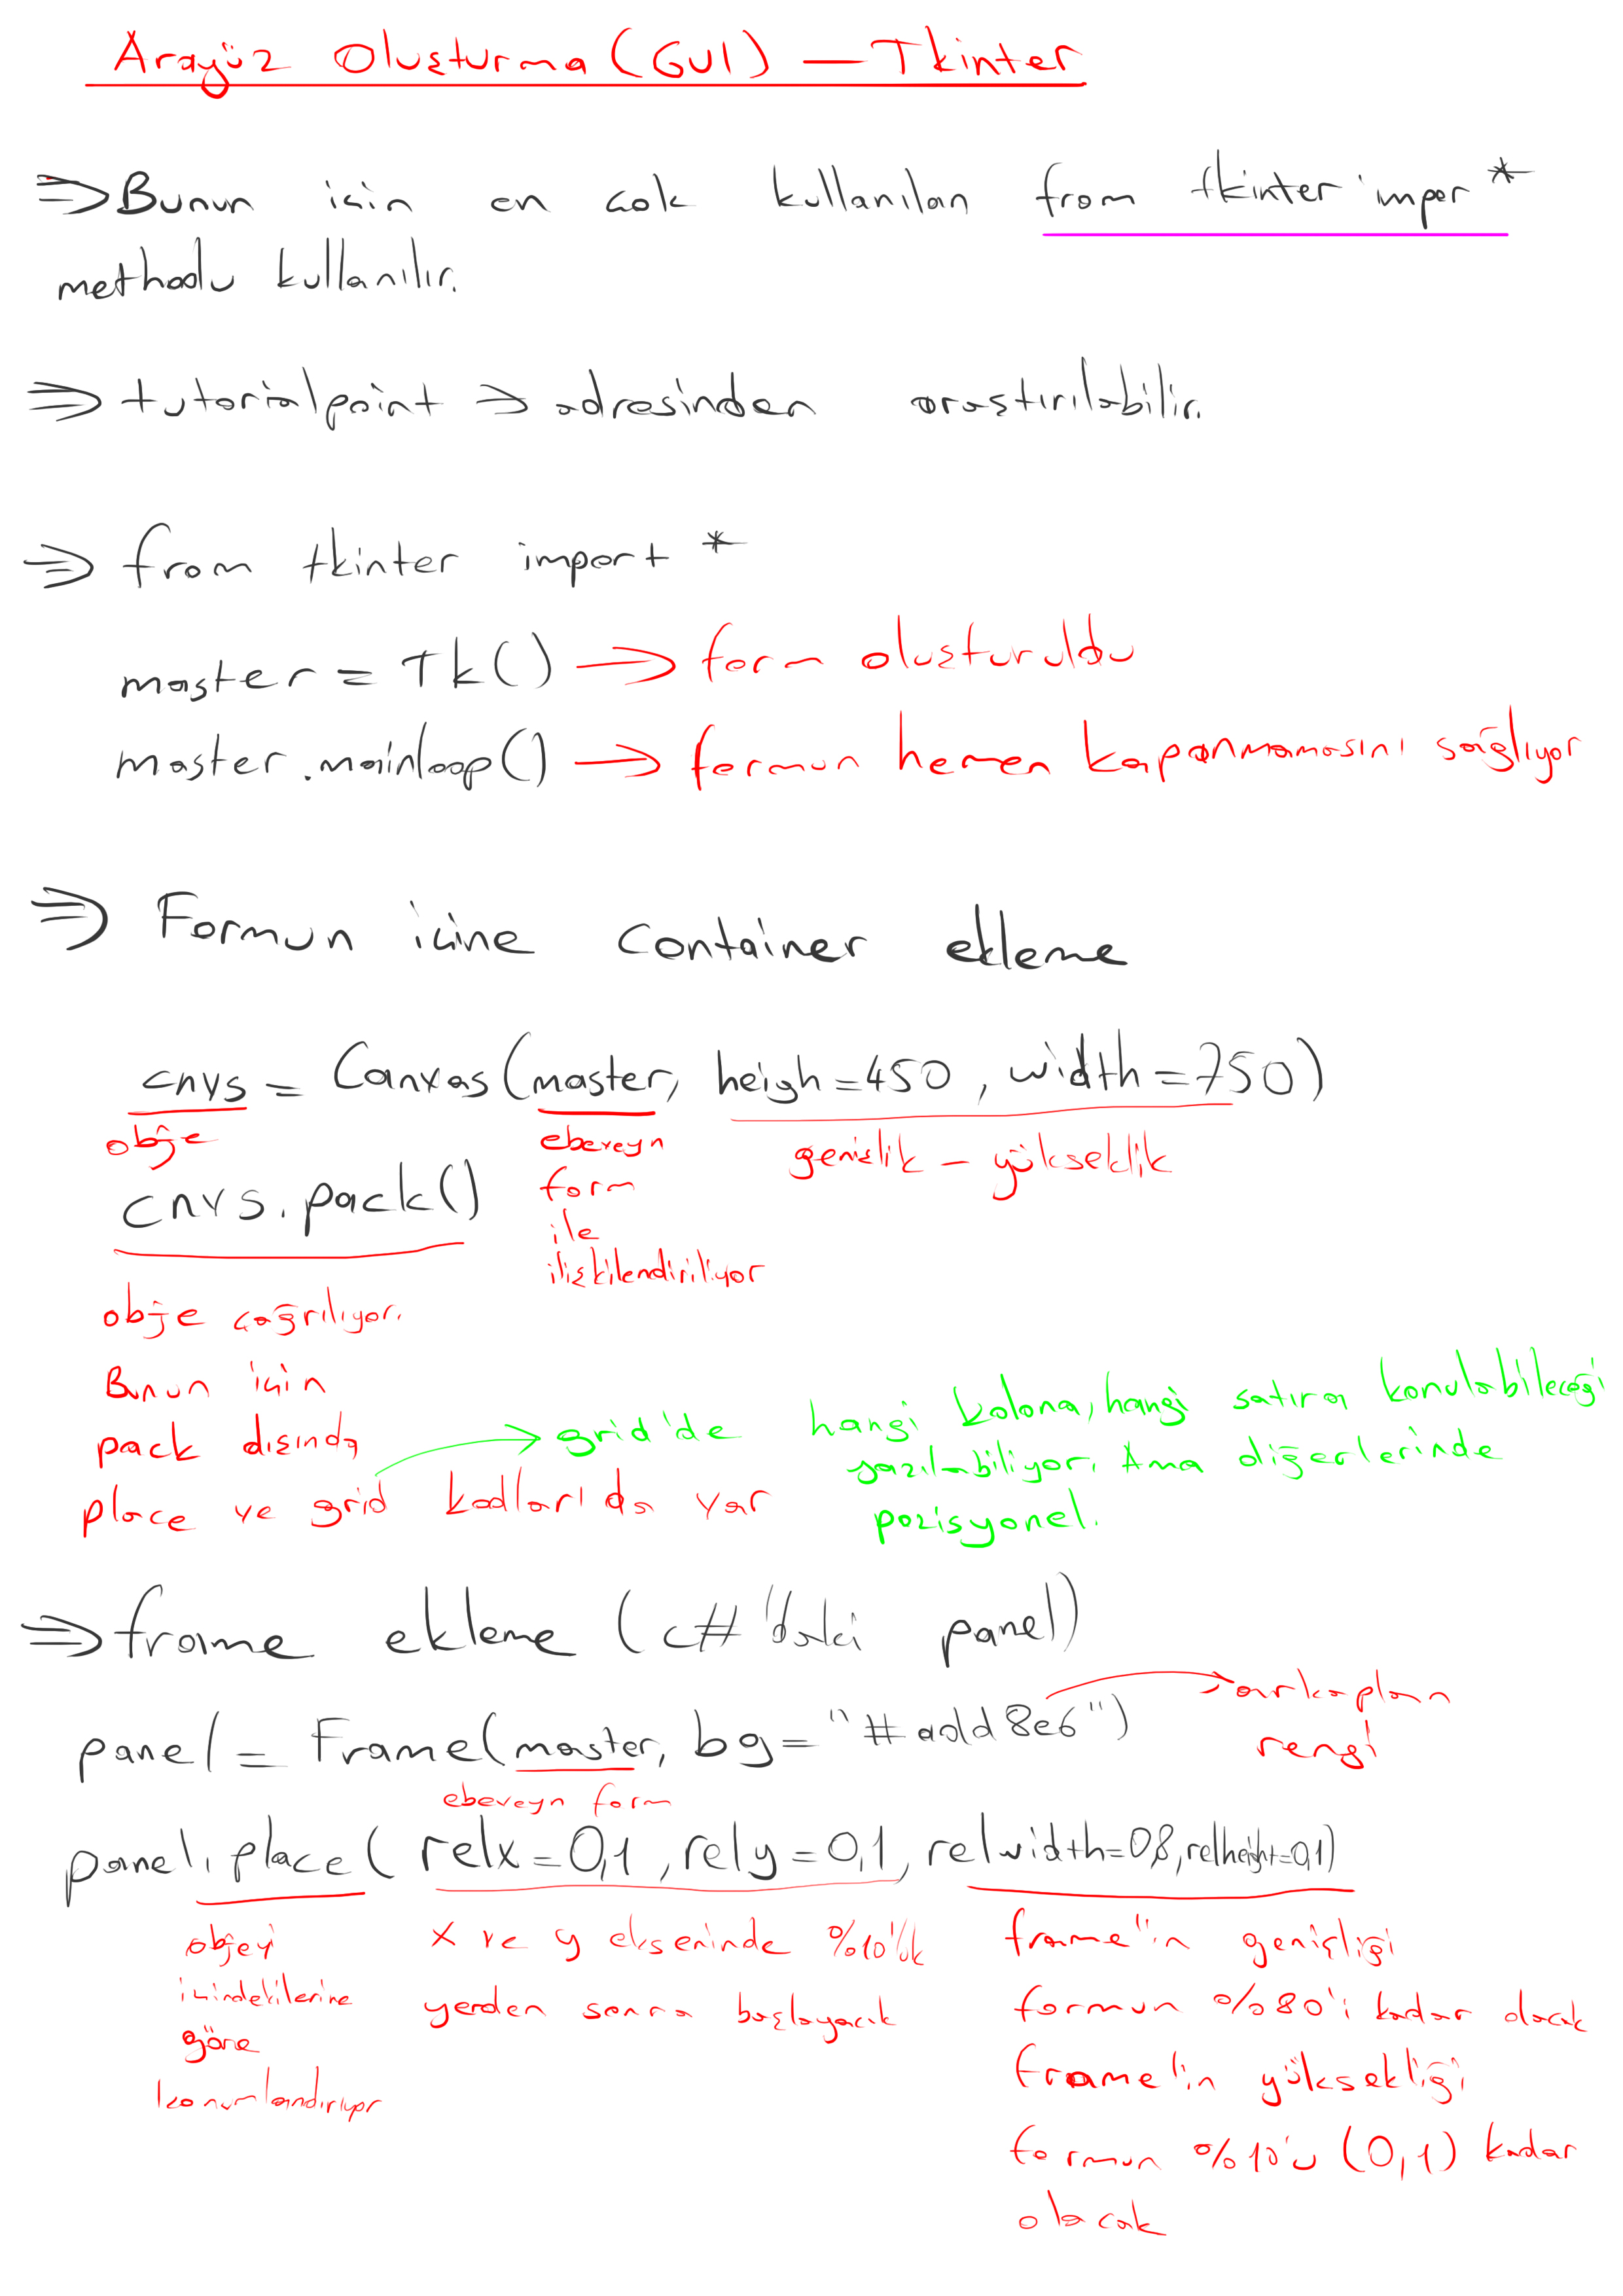 Arayüz Oluşturma (GUI) — Tkinter
⇒ Bunun için en çok kullanılan from tkinter impor *
methodu kullanılır.
⇒ tutorialpoint → adresinden araştırılabilir.
⇒ from tkinter import *
master = Tk() → form oluşturuldu
master.mainloop() → formun hemen kapanmamasını sağlıyor
⇒ Formun içine container ekleme
cnvs = Canvas(master, heigh=450, width=750)
obje
ebeveyn
form
ile
ilişkilendiriliyor
genişlik – yükseklik
cnvs.pack()
obje çağrılıyor.
Bunun için
pack dışında
place ve grid kodları da var
→ grid'de hangi kolona, hangi satıra konulabileceği
yazılabiliyor. Ama diğerlerinde
pozisyonel.
⇒ frame ekleme (c#'daki panel)
panel = Frame(master, bg="#add8e6")
→ arkaplan
rengi
ebeveyn form
panel.place(relx=0,1, rely=0,1, relwidth=0,8, relheight=0,1)
objeyi
içindekilerine
göre
konumlandırıyor
x ve y ekseninde %10'luk
yerden sonra başlayacak
frame'in genişliği
formun %80'i kadar olacak
frame'in yüksekliği
formun %10'u (0,1) kadar
olacak